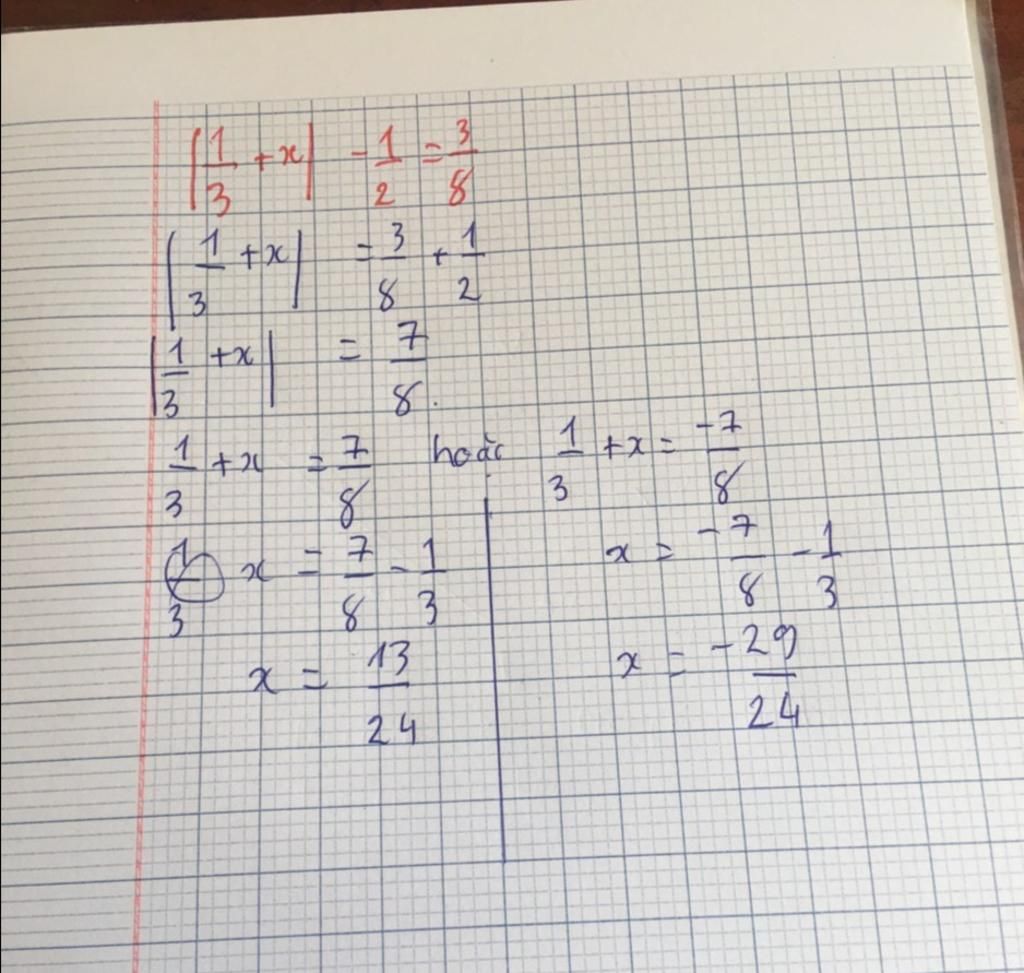 |1/3 + x| - 1/2 = 3/8
|1/3 + x| = 3/8 + 1/2
|1/3 + x| = 7/8.
1/3 + x = 7/8 hoặc 1/3 + x = -7/8
x = 7/8 - 1/3 x = -7/8 - 1/3
x = 13/24 x = -29/24